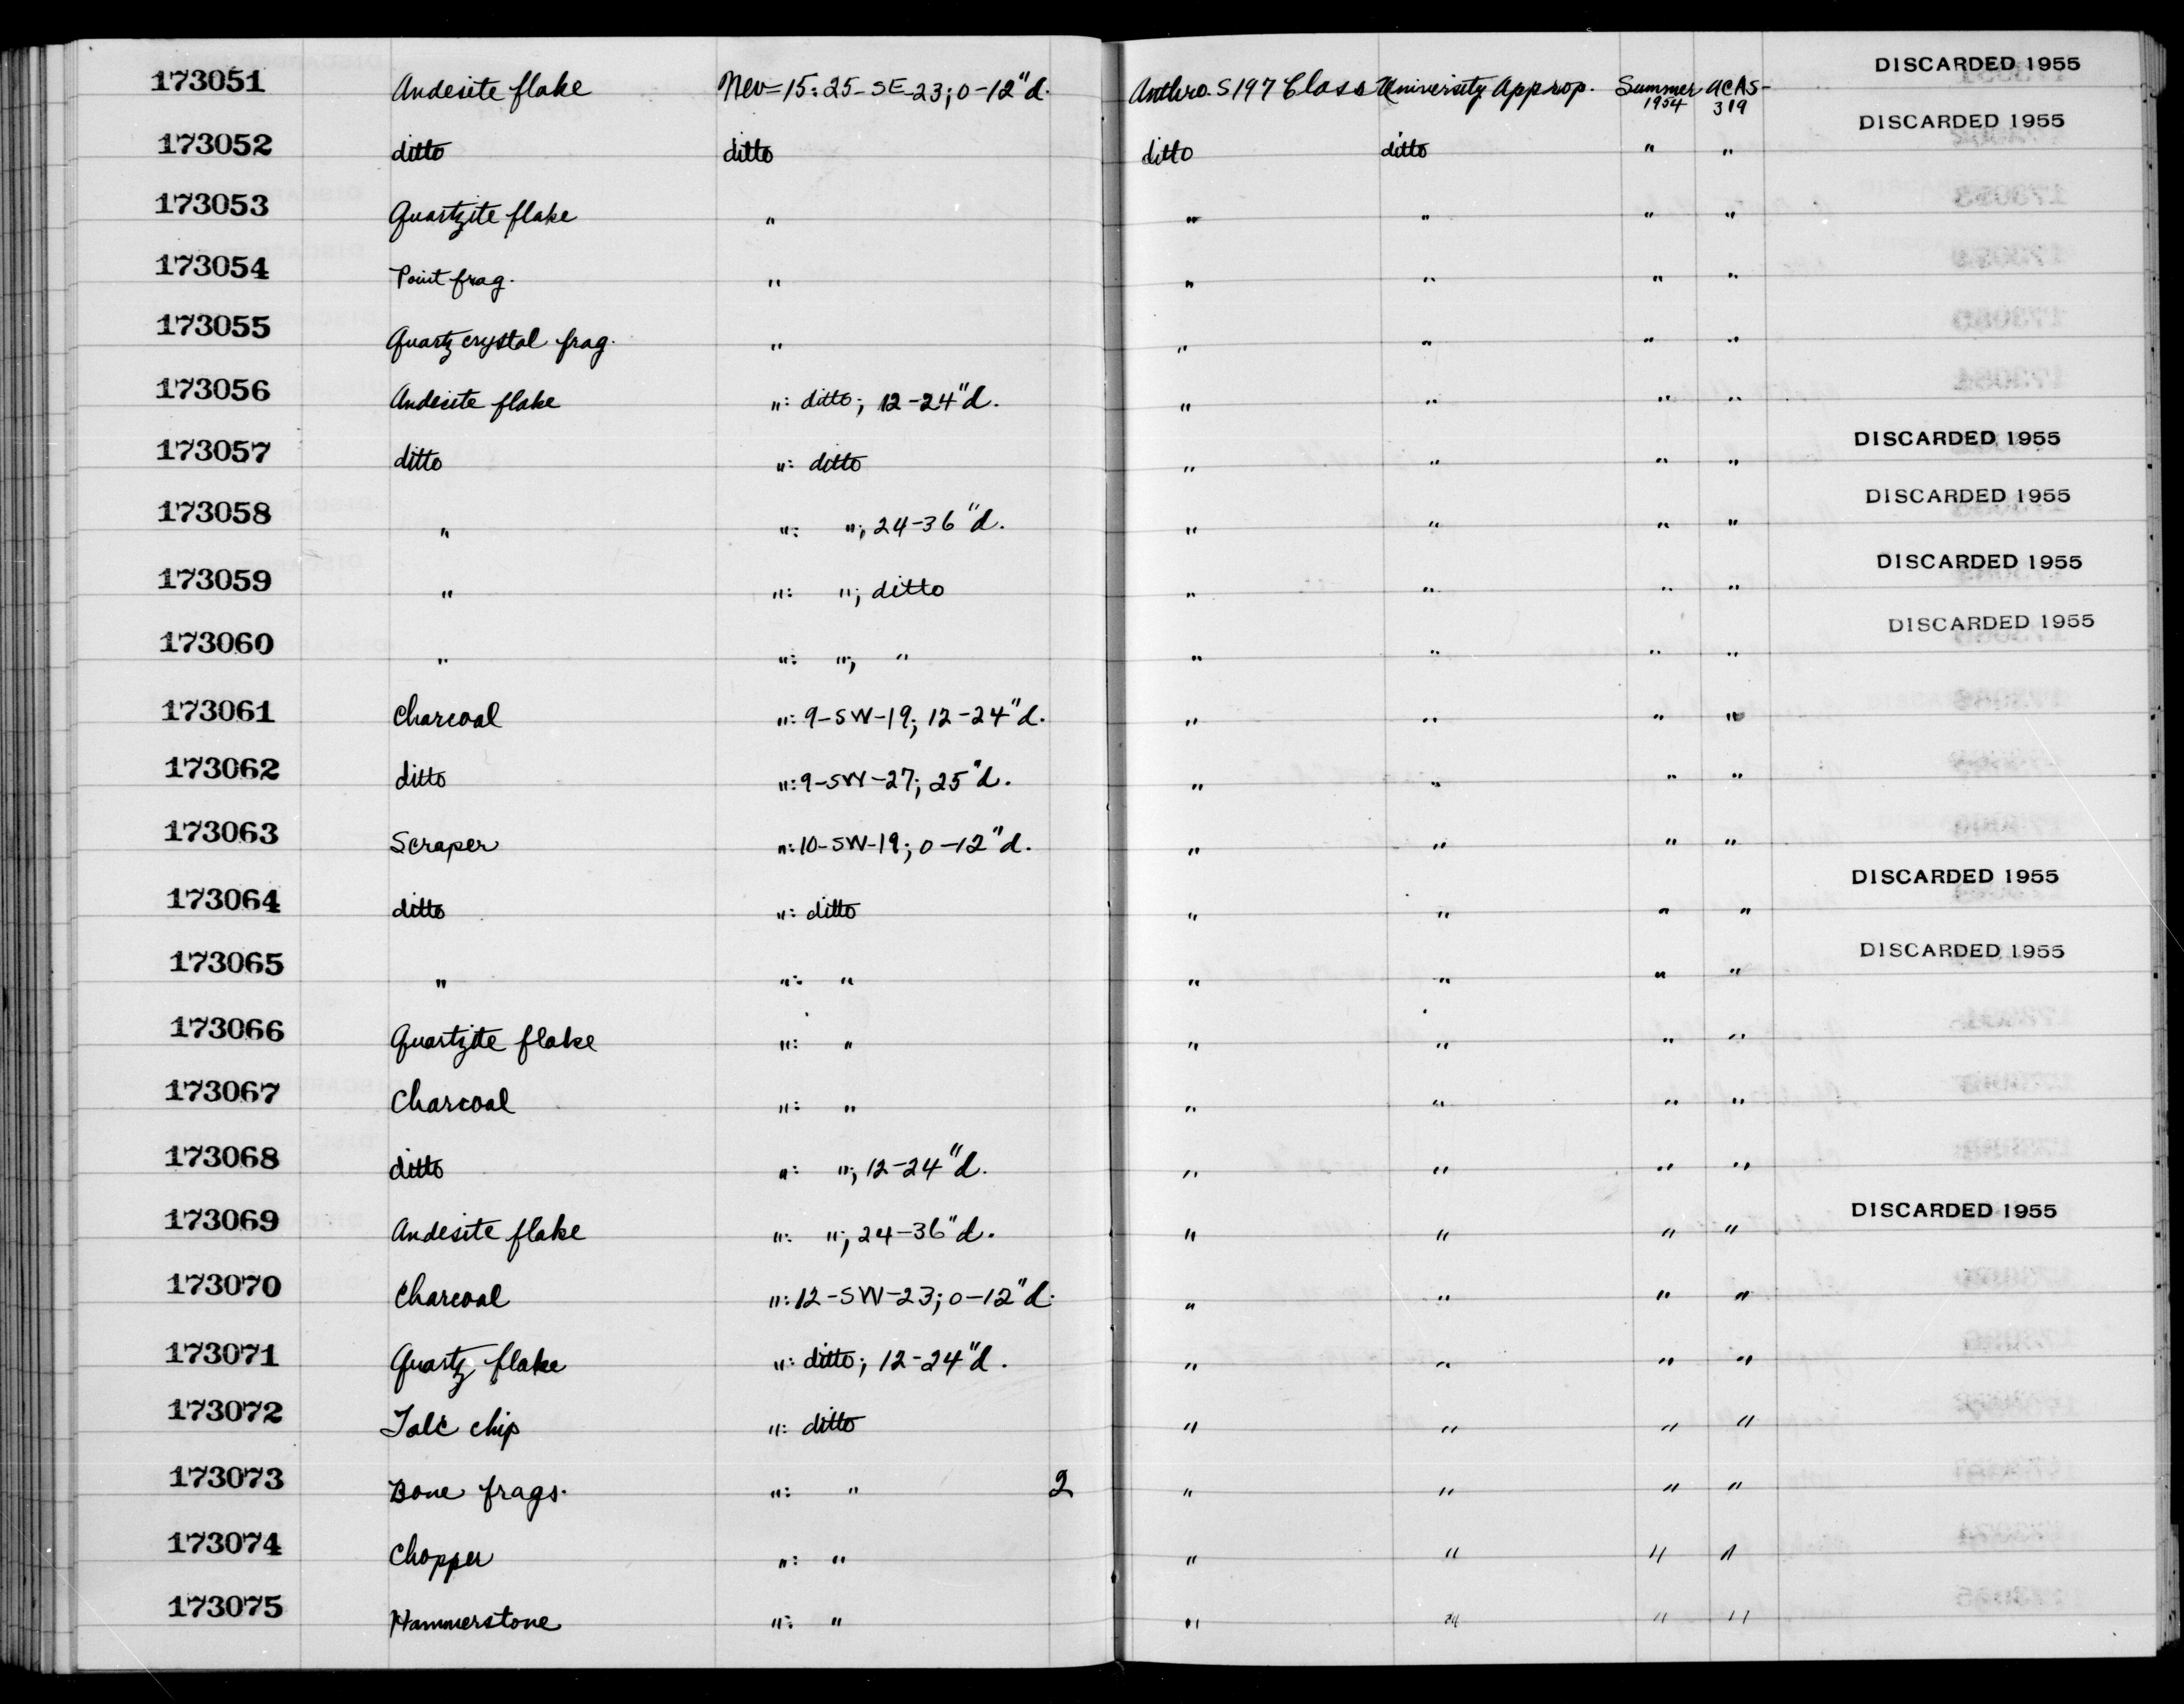 173051 Andesite flake Nev-15: 25-SE-23; 0-12"d. Anthro. S197 Class University Approp. Summer 1954 ACAS-319 DISCARDED 1955
173052 ditto ditto ditto ditto " " DISCARDED 1955
173053 Quartzite flake " " " " "
173054 Point frag. " " " " "
173055 Quartz crystal frag. " " " " "
173056 Andesite flake ": ditto; 12-24"d. " " " "
173057 ditto ": ditto " " " " DISCARDED 1955
173058 " ": "; 24-36"d. " " " " DISCARDED 1955
173059 " ": "; ditto " " " " DISCARDED 1955
173060 " ": "; " " " " " DISCARDED 1955
173061 Charcoal ": 9-SW-19; 12-24"d. " " " "
173062 ditto ": 9-SW-27; 25"d. " " " "
173063 Scraper ": 10-SW-19; 0-12"d. " " " "
173064 ditto ": ditto " " " " DISCARDED 1955
173065 " ": " " " " " DISCARDED 1955
173066 Quartzite flake ": " " " " "
173067 Charcoal ": " " " " "
173068 ditto ": "; 12-24"d. " " " "
173069 Andesite flake ": "; 24-36"d. " " " " DISCARDED 1955
173070 Charcoal ": 12-SW-23; 0-12"d. " " " "
173071 Quartz flake ": ditto; 12-24"d. " " " "
173072 Talc chip ": ditto " " " "
173073 Bone frags. ": " 2 " " " "
173074 Chopper ": " " " " "
173075 Hammerstone ": " " " " "